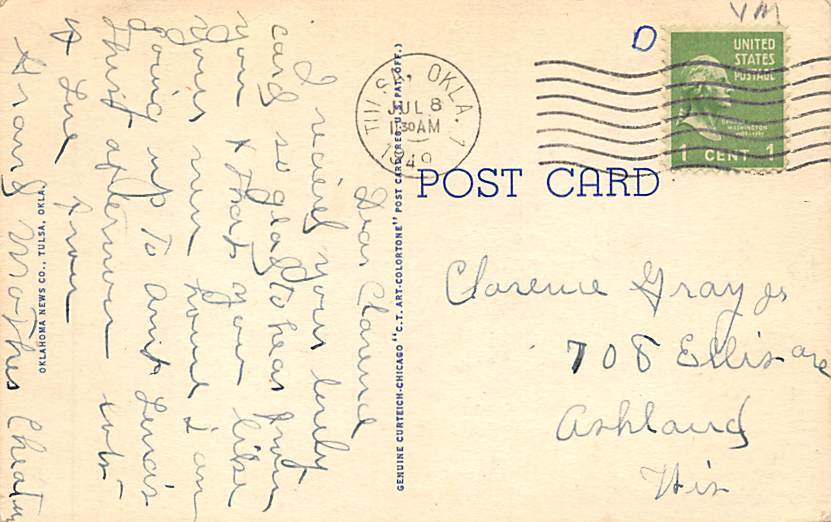 Dear Clarence
I recieved your lovely
card so glad to hear from
you & that you like
your new home I am
going up to aunt Lena's
this afternoon
& Love from
Grand Mother
OKLAHOMA NEWS CO., TULSA, OKLA.
GENUINE CURTEICH-CHICAGO "C.T. ART-COLORTONE" POST CARD (REG. U.S. PAT. OFF.)
TULSA, OKLA. 1
JUL 8
1130 AM
1949
VM
D
UNITED
STATES
POSTAGE
WASHINGTON
1 CENT 1
POST CARD
Clarence Gray Jr
708 Ellis ave
Ashland
Wis